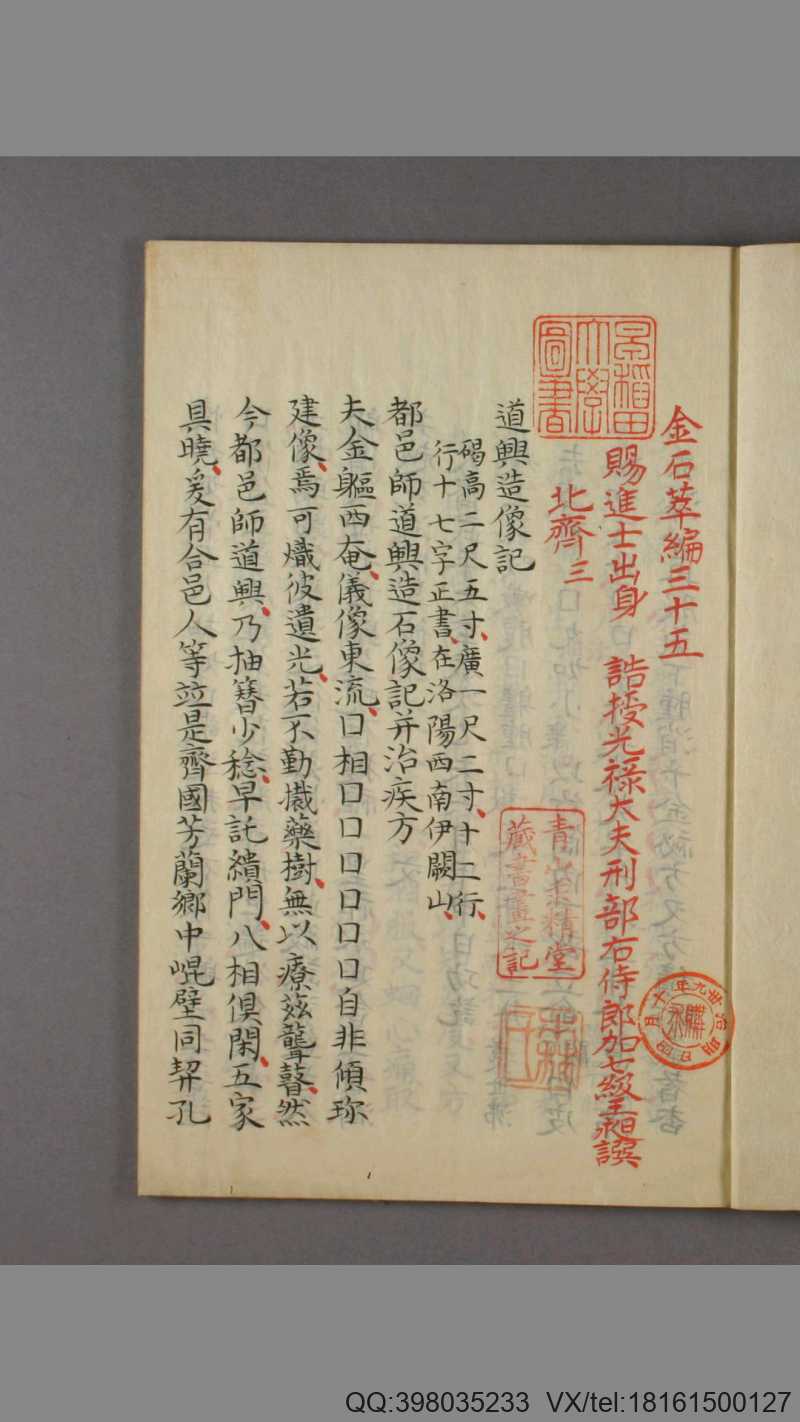 金石萃編三十五
賜進士出身 誥授光祿大夫刑部右侍郎加七級王昶譔
北齊三
道興造像記
碣高二尺五寸廣一尺二寸十二行
行十七字正書在洛陽西南伊闕山
都邑師道興造石像記并治疾方
夫金軀西奄儀像東流口相口口口口口口自非傾珎
建像焉可熾彼遺光若不勤攕藥樹無以療茲聾瞽然
今都邑師道興乃抽簪少稔早託繢門八相俱閑五家
具曉爰有合邑人等竝是齊國芳蘭鄉中崐壁同契孔
早稻田大學圖書
藏書畫之記
QQ:398035233 VX/tel:18161500127